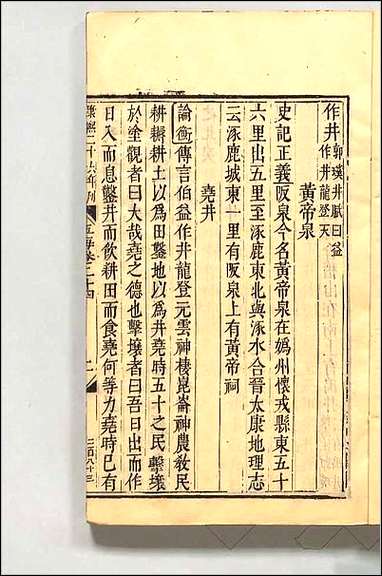 作井 郭璞井賦曰益作井龍登天
黃帝泉
史記正義阪泉今名黃帝泉在媯州懷戎縣東五十
六里出五里至涿鹿東北與涿水合晉太康地理志
云涿鹿城東一里有阪泉上有黃帝祠
堯井
論衡傳言伯益作井龍登元雲神棲崑崙神農教民
耕耨耕土以爲田鑿地以爲井堯時五十之民擊壤
於塗觀者曰大哉堯之德也擊壤者曰吾日出而作
日入而息鑿井而飲耕田而食堯何等力堯時已有
康熙二十六年刊
玉海卷二十四
二
二百八十三